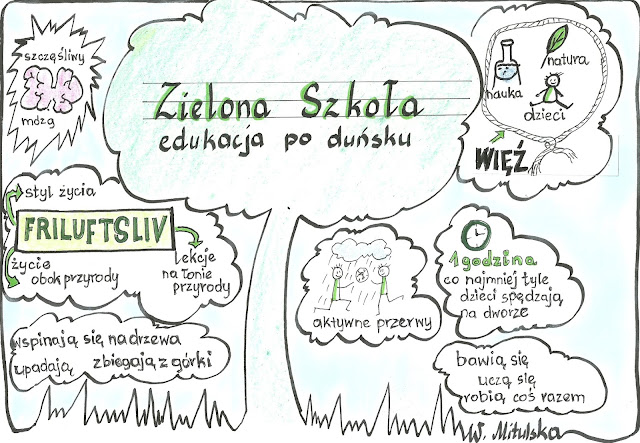 szczęśliwy
mózg
Zielona Szkoła
edukacja po duńsku
natura
nauka
dzieci
WIĘŹ
styl życia
FRILUFTSLIV
życie
obok przyrody
lekcje
na łonie
przyrody
wspinają się na drzewa
upadają zbiegają z górki
aktywne przerwy
1 godzina
co najmniej tyle
dzieci spędzają
na dworze
bawią się
uczą się
robią coś razem
W. Mitulska